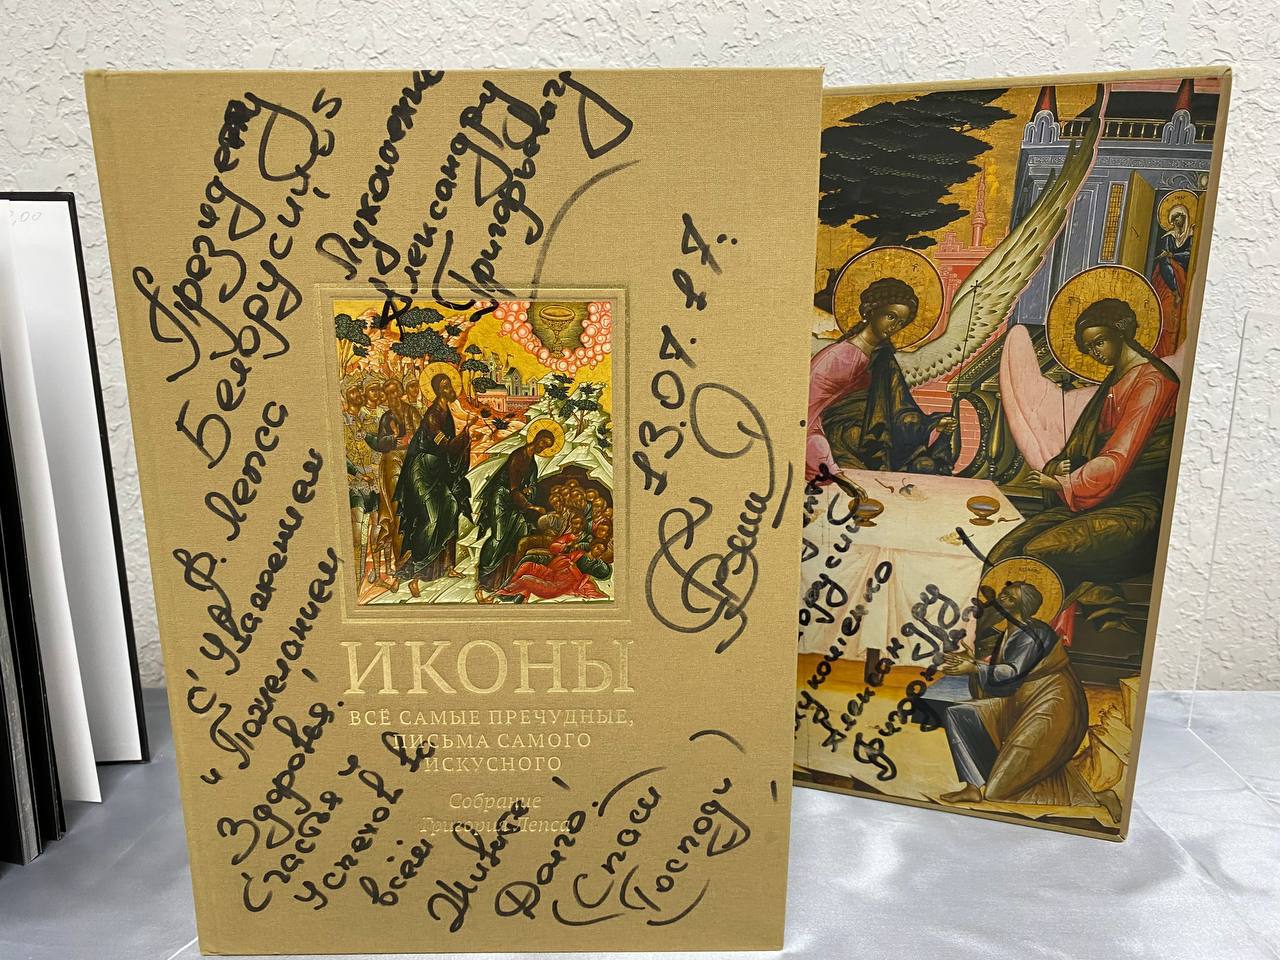 Президенту
Белоруссии
Лукашенко
Александру
Григорьевичу
С Ув. Г. Лепса
Уважением
и Пожеланием
Здоровья,
Счастья и
Успехов во
всём
Живите
Долго!
(Спаси
Господи)
13.07.27.
ИКОНЫ
ВСЁ САМЫЕ ПРЕЧУДНЫЕ,
ПИСЬМА САМОГО
ИСКУСНОГО
Собрание
Григория Лепса
Лукашенко
Александру